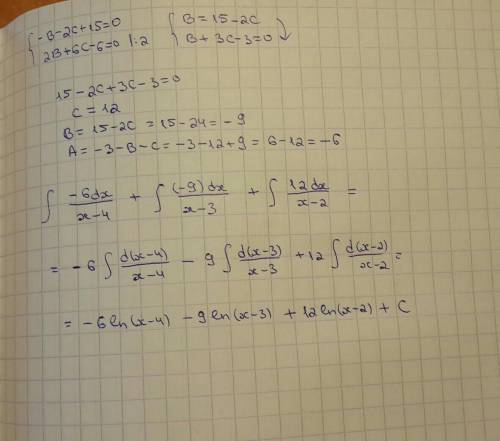 { -B-2C+15=0 { B=15-2C
2B+6C-6=0 |:2 B+3C-3=0
15-2C+3C-3=0
C=12
B=15-2C=15-24=-9
A=-3-B-C=-3-12+9=6-12=-6
∫ -6dx/x-4 + ∫ (-9)dx/x-3 + ∫ 12dx/x-2 =
= -6 ∫ d(x-4)/x-4 - 9 ∫ d(x-3)/x-3 + 12 ∫ d(x-2)/x-2 =
= -6 ln(x-4) - 9 ln(x-3) + 12 ln(x-2) + C